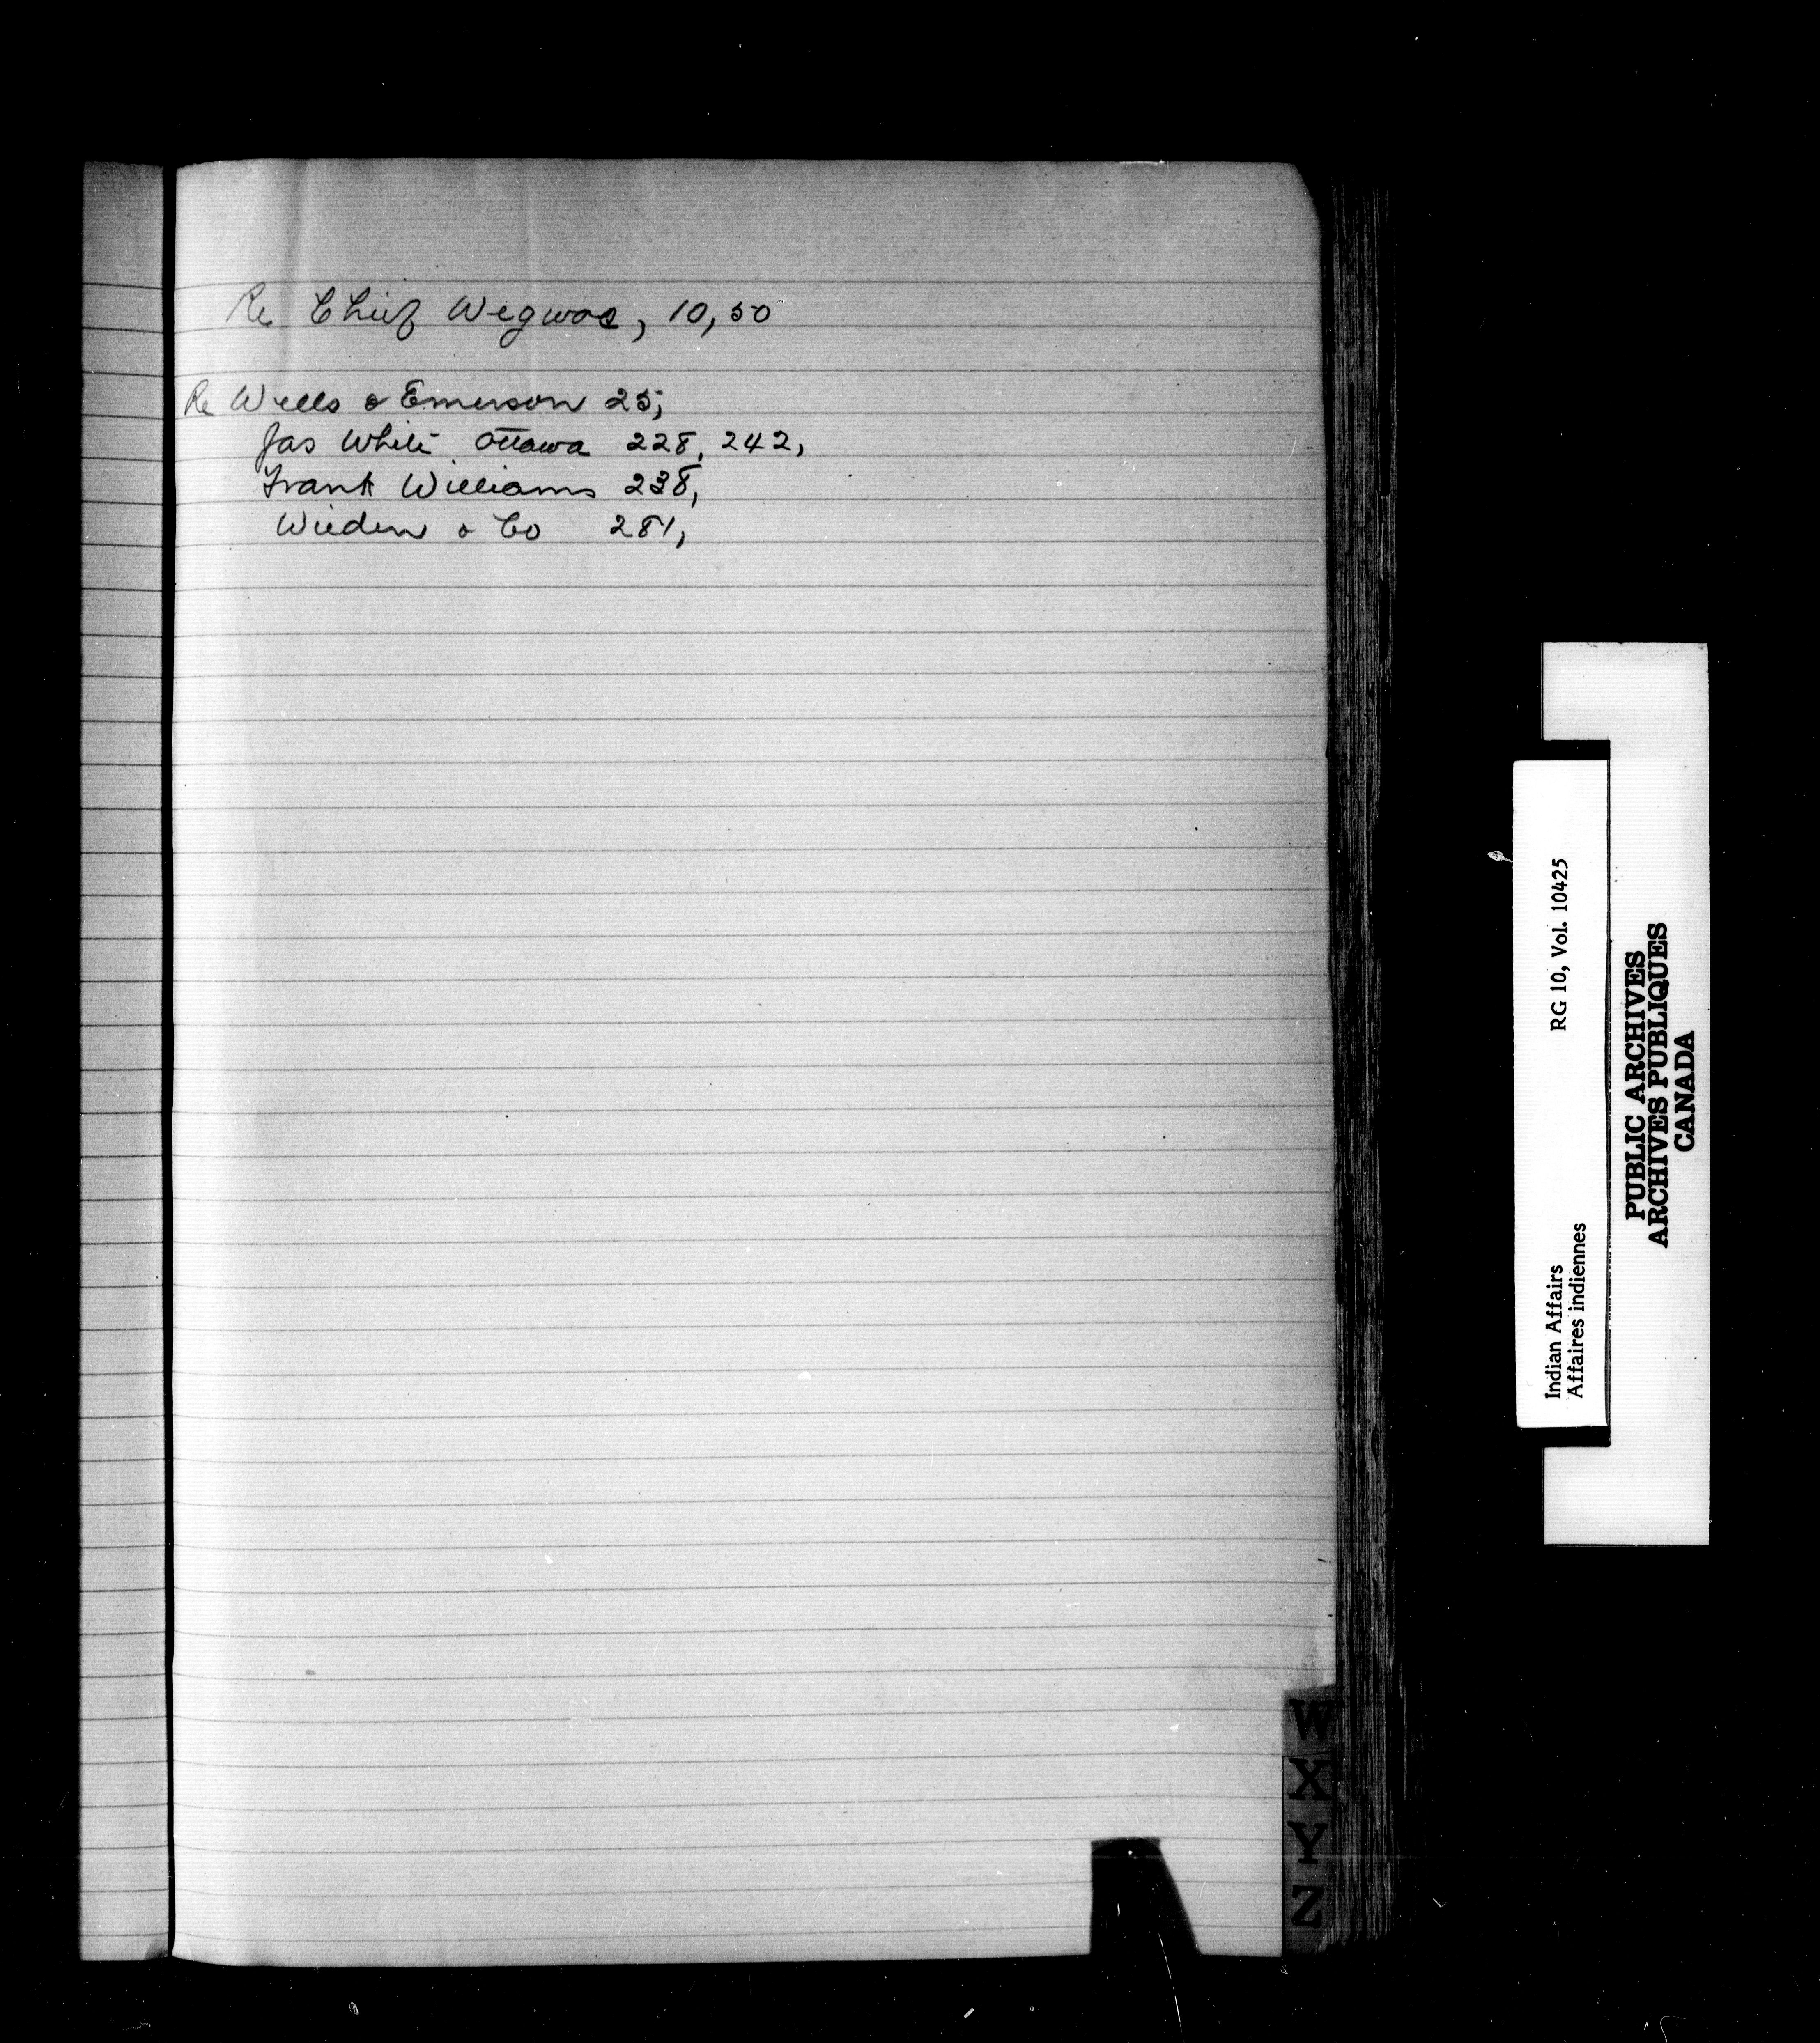 Re Chief Wegwos, 10, 50
Re Wells & Emerson 25,
Jas White Ottawa 228, 242,
Frank Williams 238,
Wieden & Co 281,
W
X
Y
Z
Indian Affairs RG 10, Vol. 10425
Affaires indiennes
PUBLIC ARCHIVES
ARCHIVES PUBLIQUES
CANADA